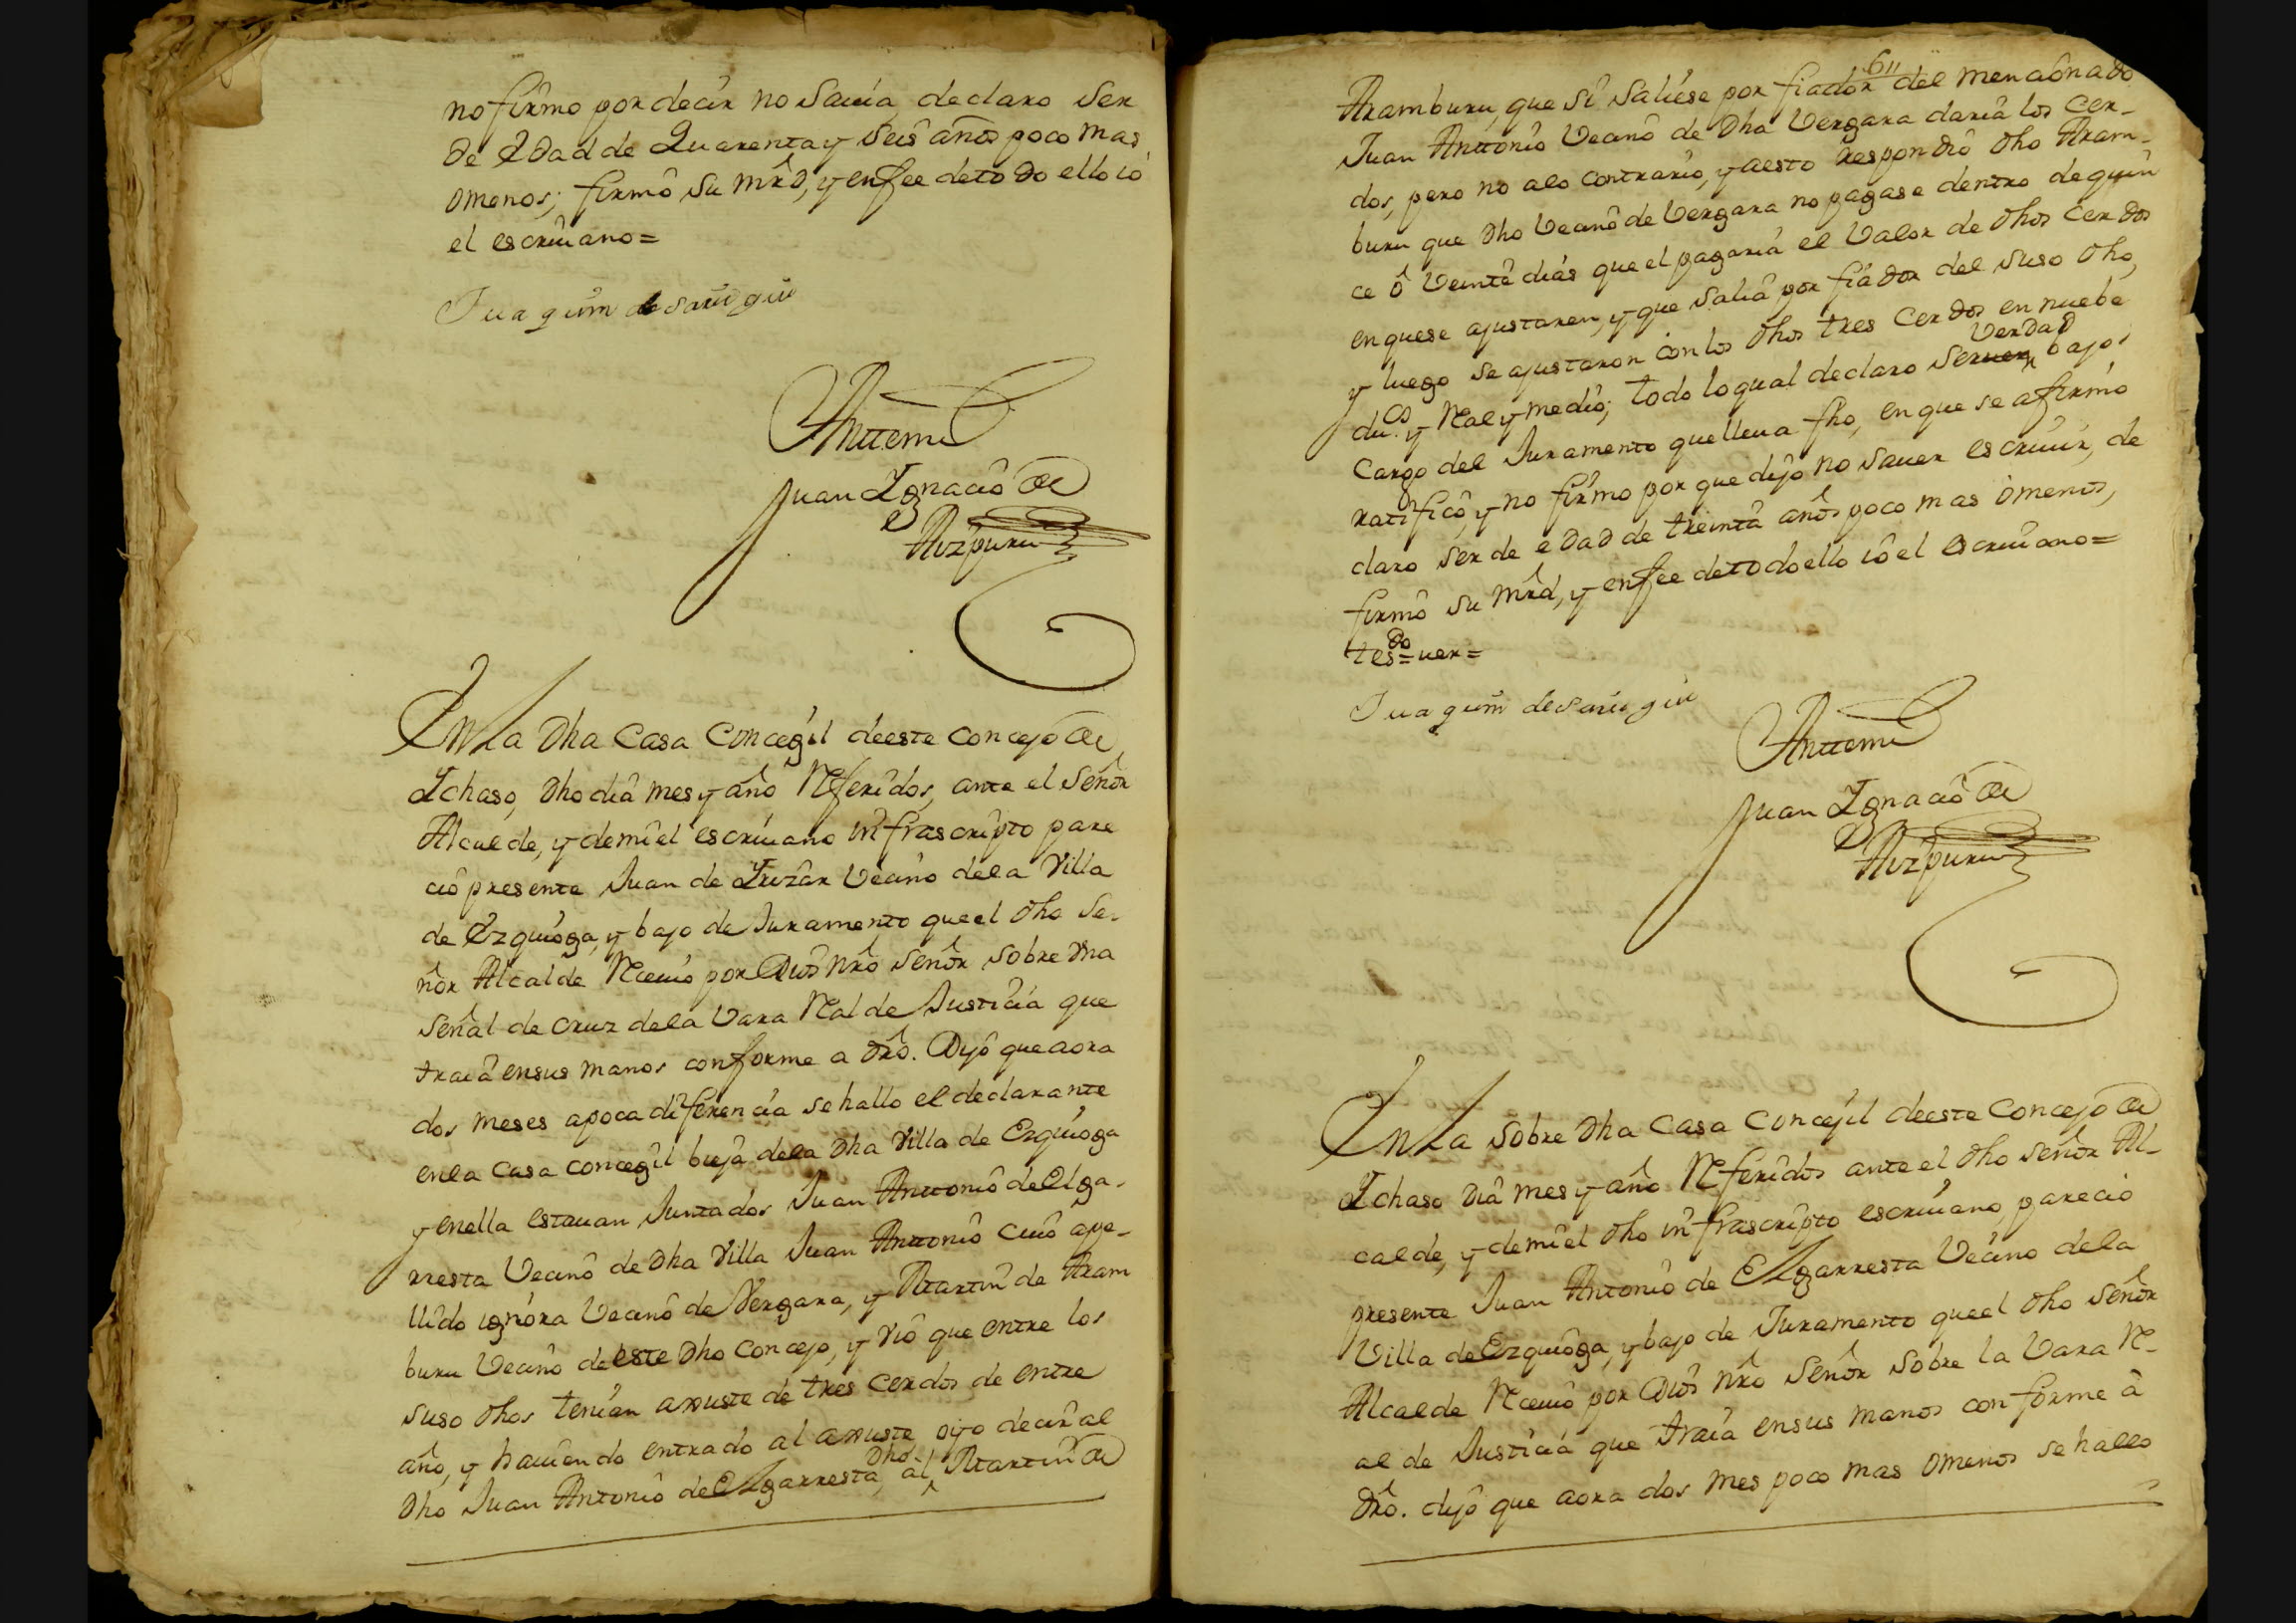 no firmo por decir no Sauia, declaro Ser
de Edad de Quarenta y Seis años poco mas
omenos; firmo Su mrd, y enfee detodo ello io
el escriuano=
Juaquin de
Anttemi
Juan Ignacio de
Aizpuru
En La Dha Casa Concegil deeste Concejo de
Ichaso, Dho dia mes y año Referidos, ante el Señor
Alcalde, y demi el escriuano infrascripto pare
cio presente Juan de Irizar Vecino dela Villa
de Ezquioga, y bajo de Juramento que el Dho Se-
ñor Alcalde Receuio por Dios nro Señor Sobre Vna
Señal de cruz dela Vara Real de Justicia que
traia ensus manos conforme a dro. Dijo que aora
dos meses apoca diferencia se hallo el declarante
enla Casa concegil bieja dela Dha Villa de Ezquioga
y enella estauan Juntados Juan Anttonio de Elga-
rresta Vecino de Dha Villa Juan Anttonio cuio ape-
llido ignora Vecino de Vergara, y Martin de Aram
buru Vecino de este Dho Concejo, y Vio que entre los
Suso dhos tenian ajuste de tres cerdos de entre
año, y hauiendo entrado al ajuste oyo decir al
Dho Juan Antonio de Elgarresta, al Dho Martin de
611
Aramburu, que si Saliese por fiador del mencionado
Juan Anttonio Vecino de Dha Vergara daria los Cer-
dos, pero no alo contrario, y aesto respondio Dho Aram-
buru que Dho Vecino de Vergara no pagase dentro de quin
ce o Veinte dias que el pagaria el Valor de Dhos Cerdos
enquese ajustaren, y que salia por fiador del suso dho,
y luego se ajustaron con los dhos tres Cerdos en nuebe
du.os y Real y medio; todo loqual declaro Ser uer Verdad bajo
Cargo del Juramento que lleua fho, en que se afirmo
ratifico, y no firmo por que dijo no Sauer escriuir, de
claro Ser de edad de treinta años poco mas omenos,
firmo Su mrd, y enfee detodoello io el escriuano=
tesdo=uer=
Juaquin de
Anttemi
Juan Ignacio de
Aizpuru
En La Sobre Dha Casa Concejil deeste Concejo de
Ichaso Dia mes y año Referidos ante el Dho Señor Al-
calde, y demi el Dho infrascripto escriuano, parecio
presente Juan Antonio de Elgarresta Vecino dela
Villa de Ezquioga, y bajo de Juramento que el Dho Señor
Alcalde Receuio por Dios nro Señor Sobre la Vara Re-
al de Justicia que traia ensus manos conforme à
dro. dijo que aora dos mes poco mas omenos se hallo